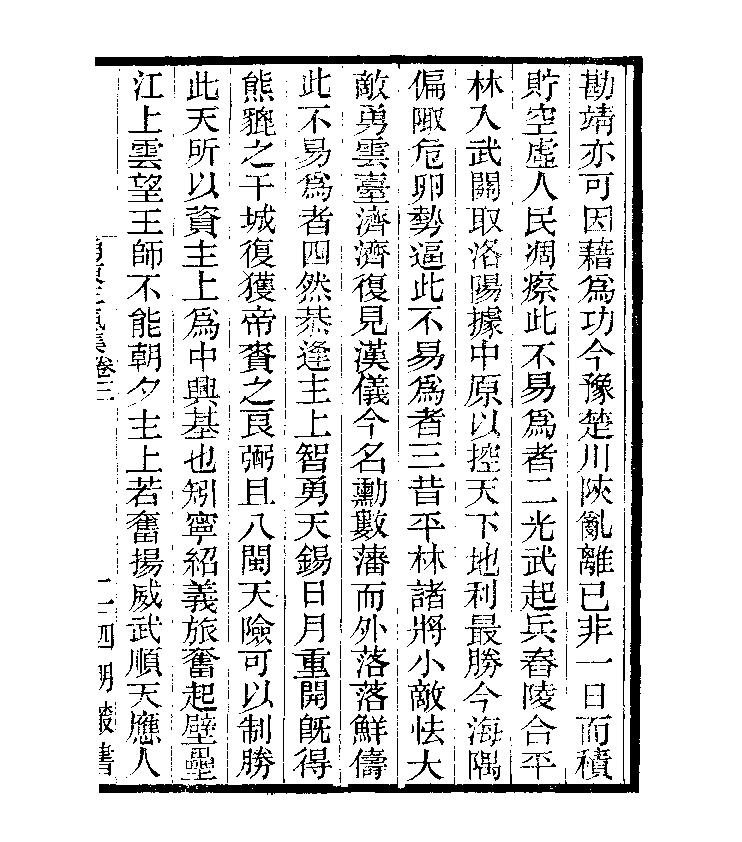 勘靖亦可因藉爲功今豫楚川陝亂離已非一日而積
貯空虛人民凋瘵此不易爲者二光武起兵舂陵合平
林入武關取洛陽據中原以控天下地利最勝今海隅
偏陬危卵勢逼此不易爲者三昔平林諸將小敵怯大
敵勇雲臺濟濟復見漢儀今名勳數藩而外落落鮮儔
此不易爲者四然恭逢主上智勇天錫日月重開既得
熊貔之干城復獲帝賚之良弼且八閩天險可以制勝
此天所以資主上爲中興基也矧寧紹義旅奮起壁壘
江上雲望王師不能朝夕主上若奮揚威武順天應人
集卷三
四明叢書